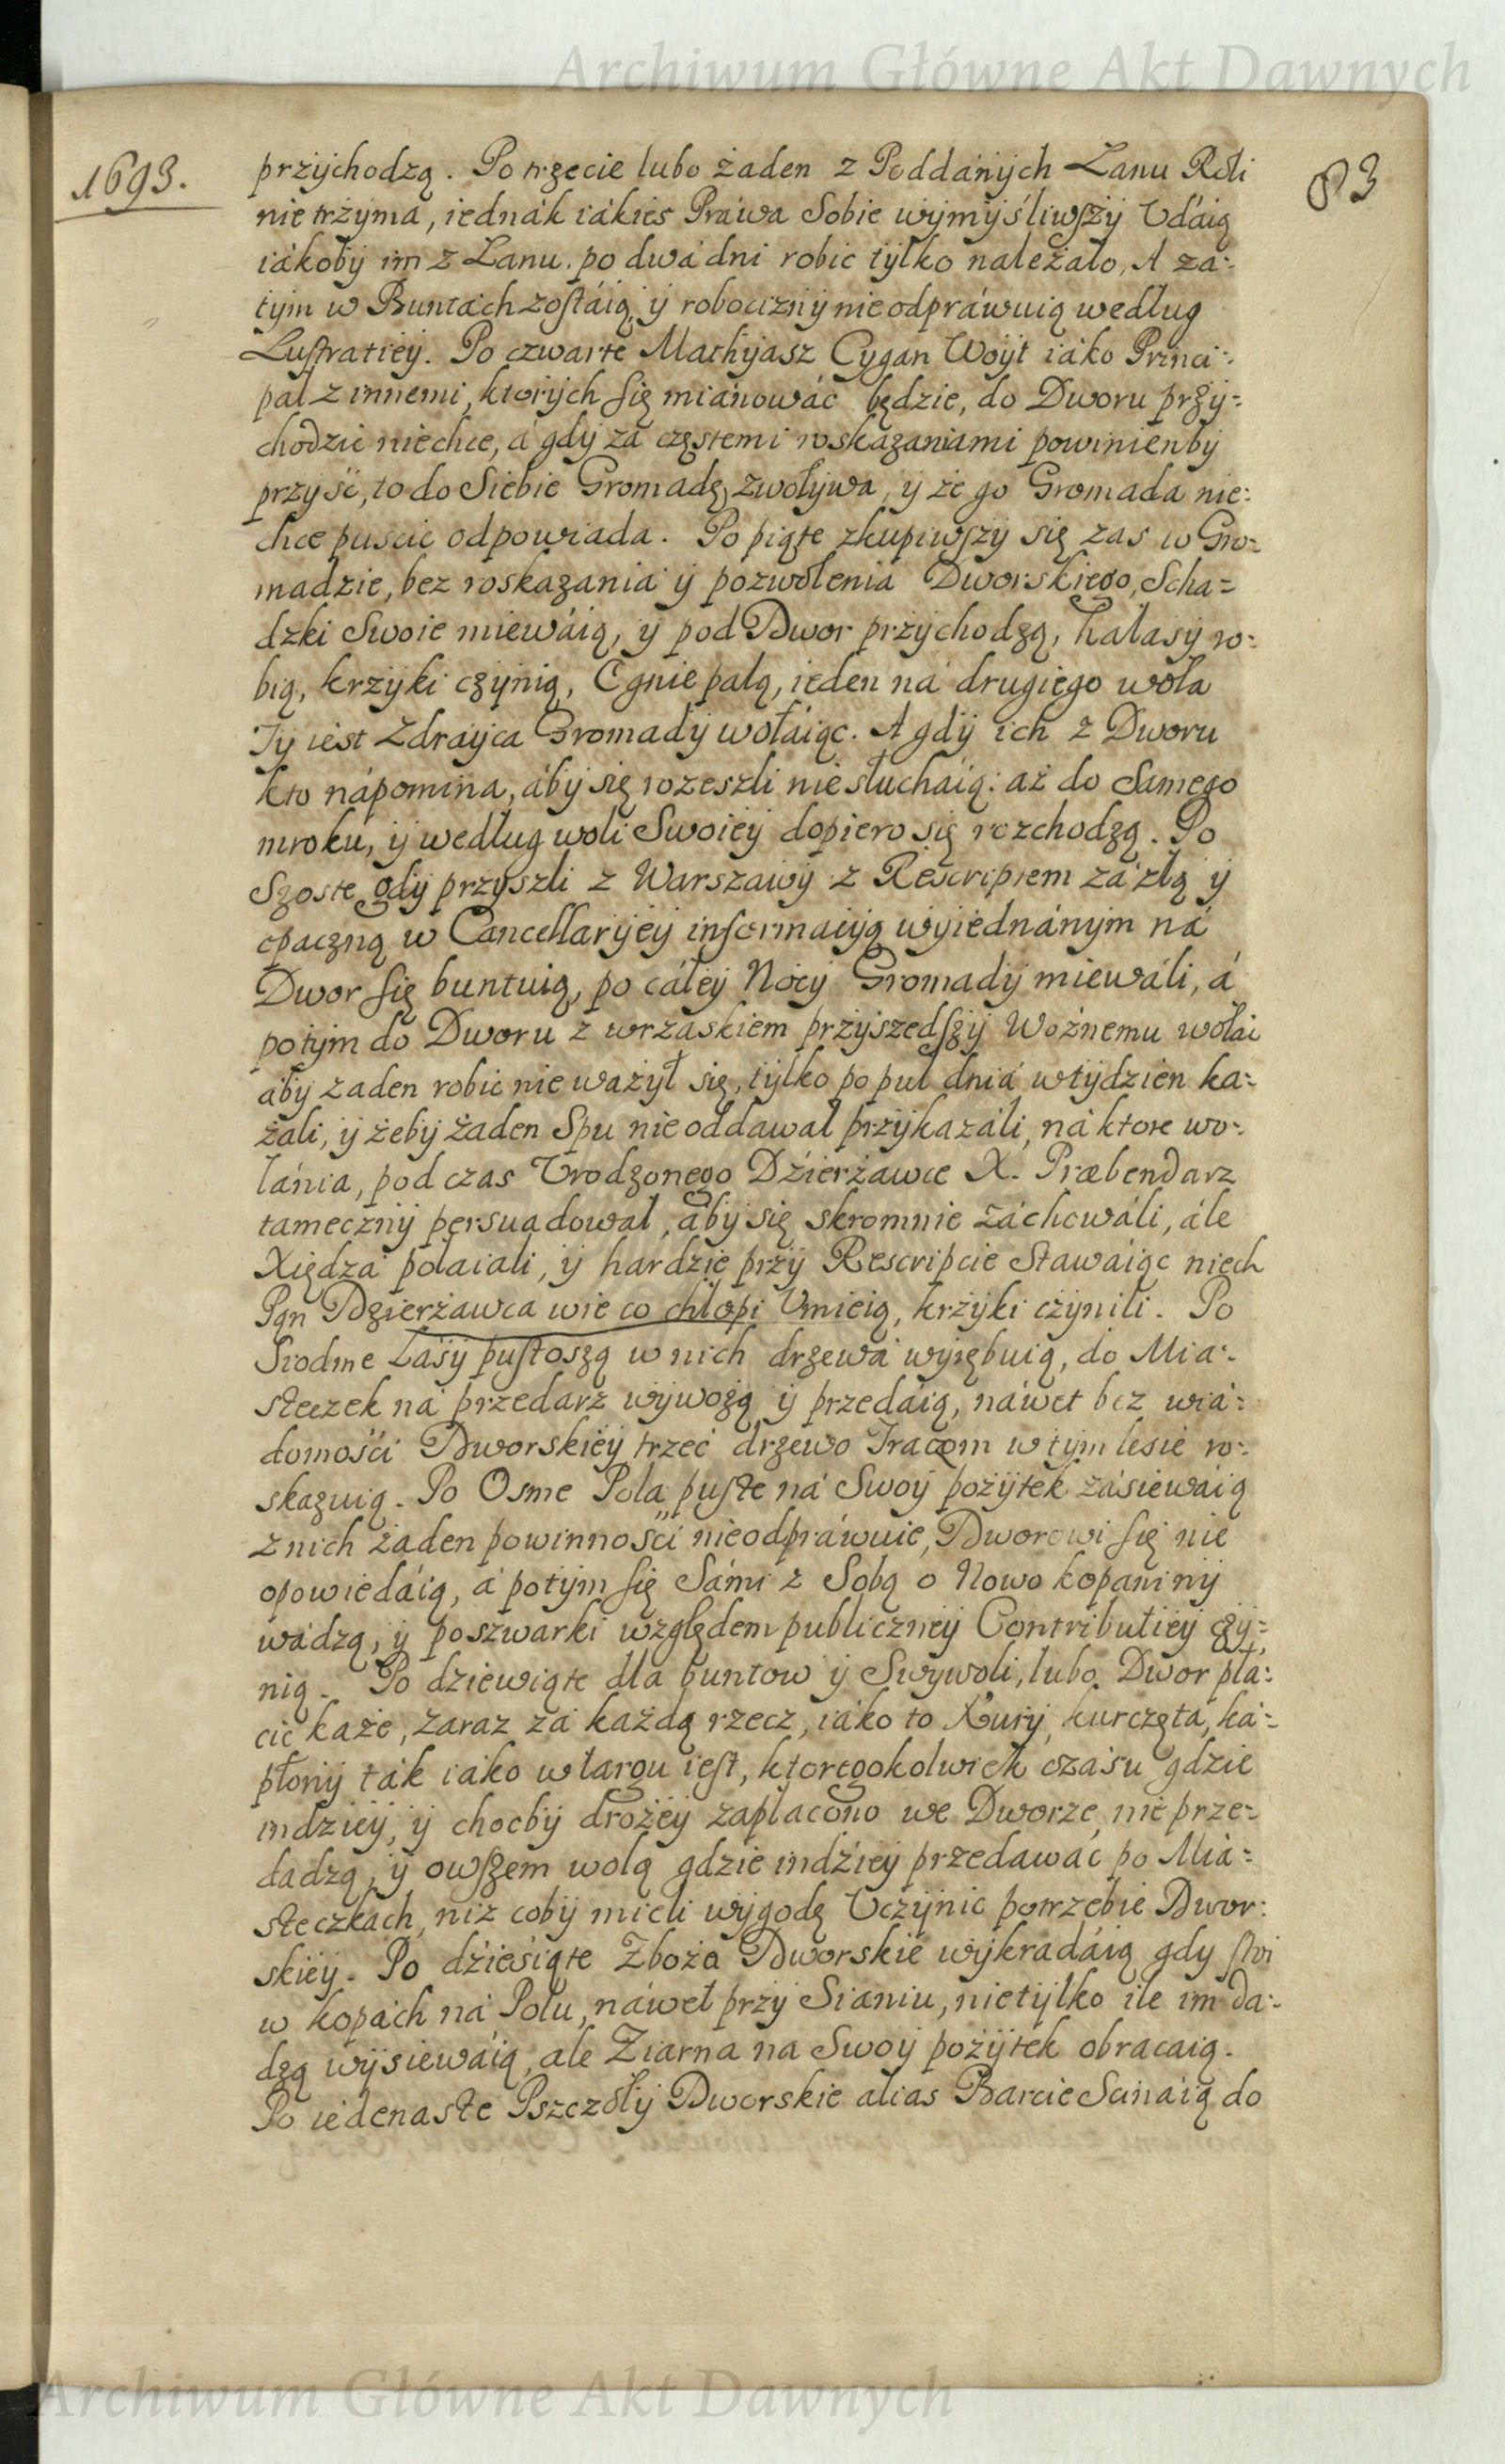 Archiwum Główne Akt Dawnych
1693.
83
przÿchodzą. Po trzecie lubo żaden z Poddánÿch Łanu Roli
nie trżÿmá, iednák iákieś Práwa Sobie wÿmÿśliwſzÿ Udáią
iákobÿ im z Łanu. po dwá dni robić tÿlko należáło, A zá:
tÿm w Buntách zoſtáią, ÿ robociznÿ nie odpráwuią według
Luſtratiëÿ. Po czwarte Mathÿjasz Cygan Woÿt iáko Princi:
pał z innemi, ktorÿch ſię miánowáć będzie, do Dworu przÿ=
chodzić niechce, á gdÿ zá częstemi roskazaniami powinienbÿ
przÿsć, to do Siebie Gromadę zwołÿwa, ÿ że go Gromada nie:
chce puscić odpowiada. Po piąte zkupiwſzÿ się zas w Gro=
madzie, bez roskazania ÿ pozwolenia Dworskiego, Scha=
dzki Swoie miewáią, ÿ pod Dwor przÿchodzą, hałasÿ ro:
bią, krzÿki czÿnią, Ognie palą, ieden ná drugiego woła
Tÿ iest Zdraÿca Gromadÿ wołáiąc. A gdÿ ich z Dworu
kto nápomina, ábÿ się rozeszli nie słucháią: aż do Samego
mroku, ÿ według woli Swoiëÿ dopiero się rozchodzą. Po
Szoste gdÿ przÿszli z Warszawÿ z Rescriptem zá złą ÿ
opaczną w Cancellarÿëÿ informaÿą wÿiednánÿm ná
Dwor ſię buntuią, po cáłëÿ Nocÿ Gromadÿ miewáli, á
potÿm do Dworu z wrzaskiem przÿszedſzÿ Woźnemu wołać
ábÿ zaden robić nie ważÿł się, tÿlko po puł dniá w tÿdzień ka:
żali, ÿ żebÿ żaden Spu nie oddawał przÿkazáli, ná ktore wo:
łánia, pod czas Urodzonego Dźierżawce X. Præbendarz
tamecznÿ persuadował, ábÿ się skromnie záchowáli, ále
Xiędza połaiali, ÿ hardzie przÿ Rescripcie Stawáiąc niech
Pan Dzierżawca wie co chłopi Umieią, krżÿki cżÿnili. Po
Siodme Lásÿ puſtoszą w nich drzewa wÿrębuią, do Mia:
steczek ná przedarz wÿwożą ÿ przedáią, náwet bez wiá:
domośći Dworskiëÿ trzeć drzewo Tracom w tÿm lesie ro:
skazuią. Po Osme Pola puſte ná Swoÿ pożÿtek zásiewáią
z nich żaden powinnośći nieodpráwuie, Dworowi ſię nie
opowiedáią, á potÿm ſię Sámi z Sobą o Nowo kopaninÿ
wádzą, ÿ poszwarki względem publicznëÿ Contributiëÿ czÿ=
nią. Po dziewiąte dla buntow ÿ Swÿwoli, lubo Dwor płá:
cić każe, zaraz zá każdą rzecz, iáko to Kurÿ, kurczęta, ká:
płonÿ ták iako w targu ieſt, ktoregokolwiek czásu gdzie
indziëÿ, ÿ choćbÿ drożëÿ zapłacono we Dworze, nie prze:
dadzą, ÿ owſzem wolą gdzie indźiëÿ przedawać po Miá:
steczkach, niż cobÿ mieli wÿgodę Uczÿnić potrzebie Dwor:
skiëÿ. Po dźieśiąte Zboża Dworskie wÿkradáią gdy ſtoi
w kopách ná Polu, náwet przÿ Sianiu, nie tÿlko ile im da:
dzą wÿsiewáią, ale Ziarna na Swoÿ pożÿtek obracaią.
Po iedenaste Pszczołÿ Dworskie alias Barcie Scináią do
Archiwum Główne Akt Dawnych